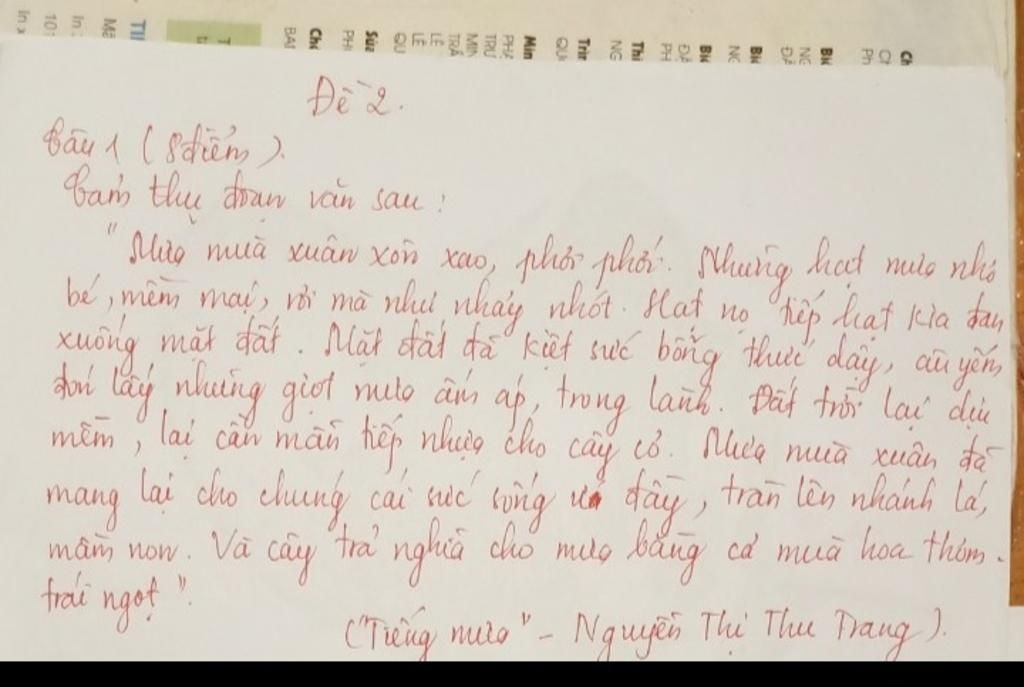 Ch
Ch
Ph
Biê
NG
ĐÀ
Biê
NG
Biê
ĐĂ
PH
Thi
NG
Trìn
QU
Min
PHẠ
TRƯ
MIN
TRẦ
LÊ
LÊ
QU
Sửa
PH
Chế
BAN
T
TI
Mã
In
10
In x
Đề 2.
Câu 1 (8 điểm).
Cảm thụ đoạn văn sau:
"Mưa mùa xuân xôn xao, phơi phới. Những hạt mưa nhỏ
bé, mềm mại, rơi mà như nhảy nhót. Hạt nọ tiếp hạt kia đan
xuống mặt đất. Mặt đất đã kiệt sức bỗng thức dậy, âu yếm
đón lấy những giọt mưa ấm áp, trong lành. Đất trời lại dịu
mềm, lại cần mẫn tiếp nhựa cho cây cỏ. Mưa mùa xuân đã
mang lại cho chúng cái sức sống ứ đầy, tràn lên nhánh lá,
mầm non. Và cây trả nghĩa cho mưa bằng cả mùa hoa thơm
trái ngọt".
("Tiếng mưa" - Nguyễn Thị Thu Trang).